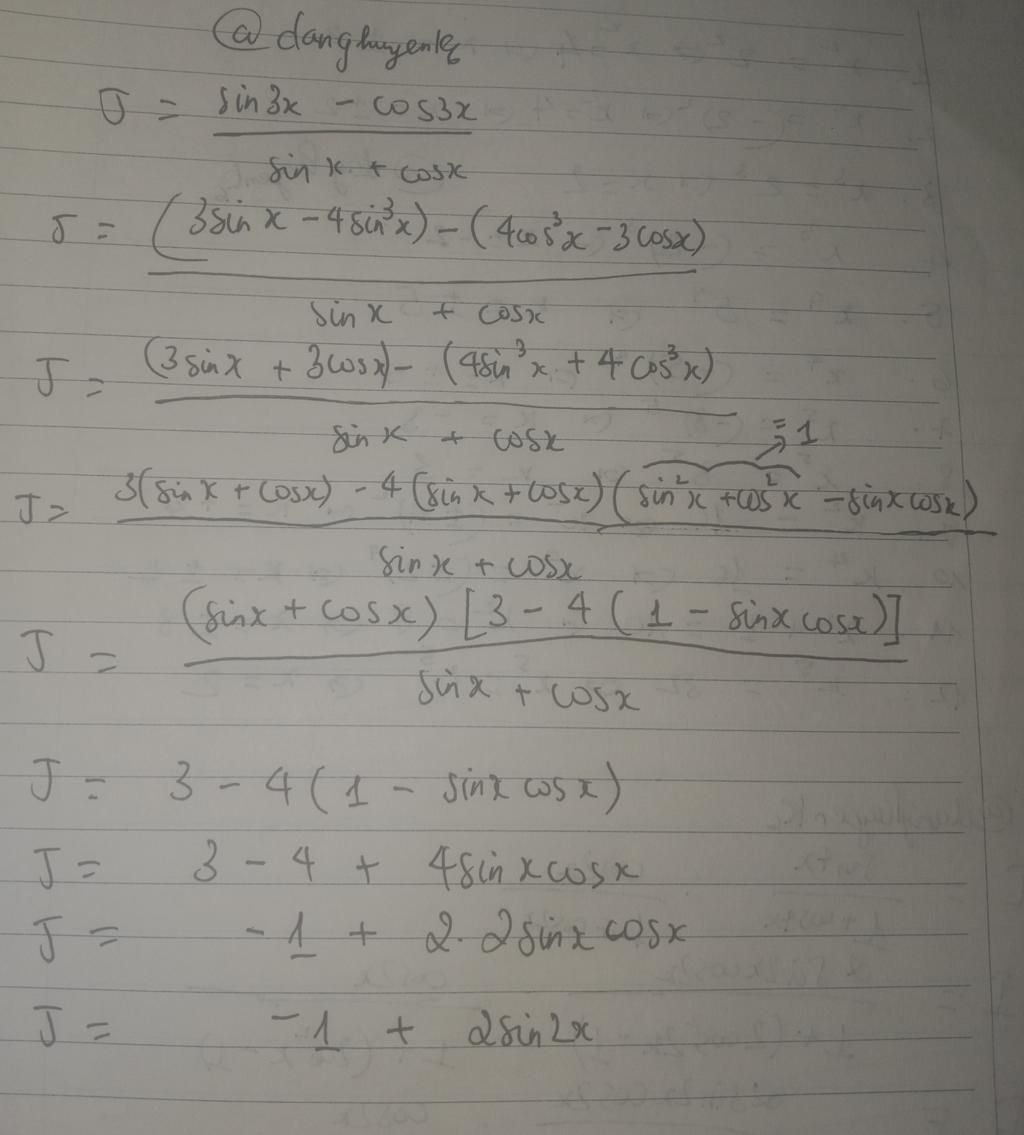 @danghuyenlq
J = sin3x - cos3x
sinx + cosx
J = (3sinx - 4sin³x) - (4cos³x - 3cosx)
sinx + cosx
J = (3sinx + 3cosx) - (4sin³x + 4cos³x)
sinx + cosx
= 1
J = 3(sinx + cosx) - 4(sinx + cosx)(sin²x + cos²x - sinxcosx)
sinx + cosx
J = (sinx + cosx)[3 - 4(1 - sinxcosx)]
sinx + cosx
J = 3 - 4(1 - sinxcosx)
J = 3 - 4 + 4sinxcosx
J = -1 + 2.2sinxcosx
J = -1 + 2sin2x